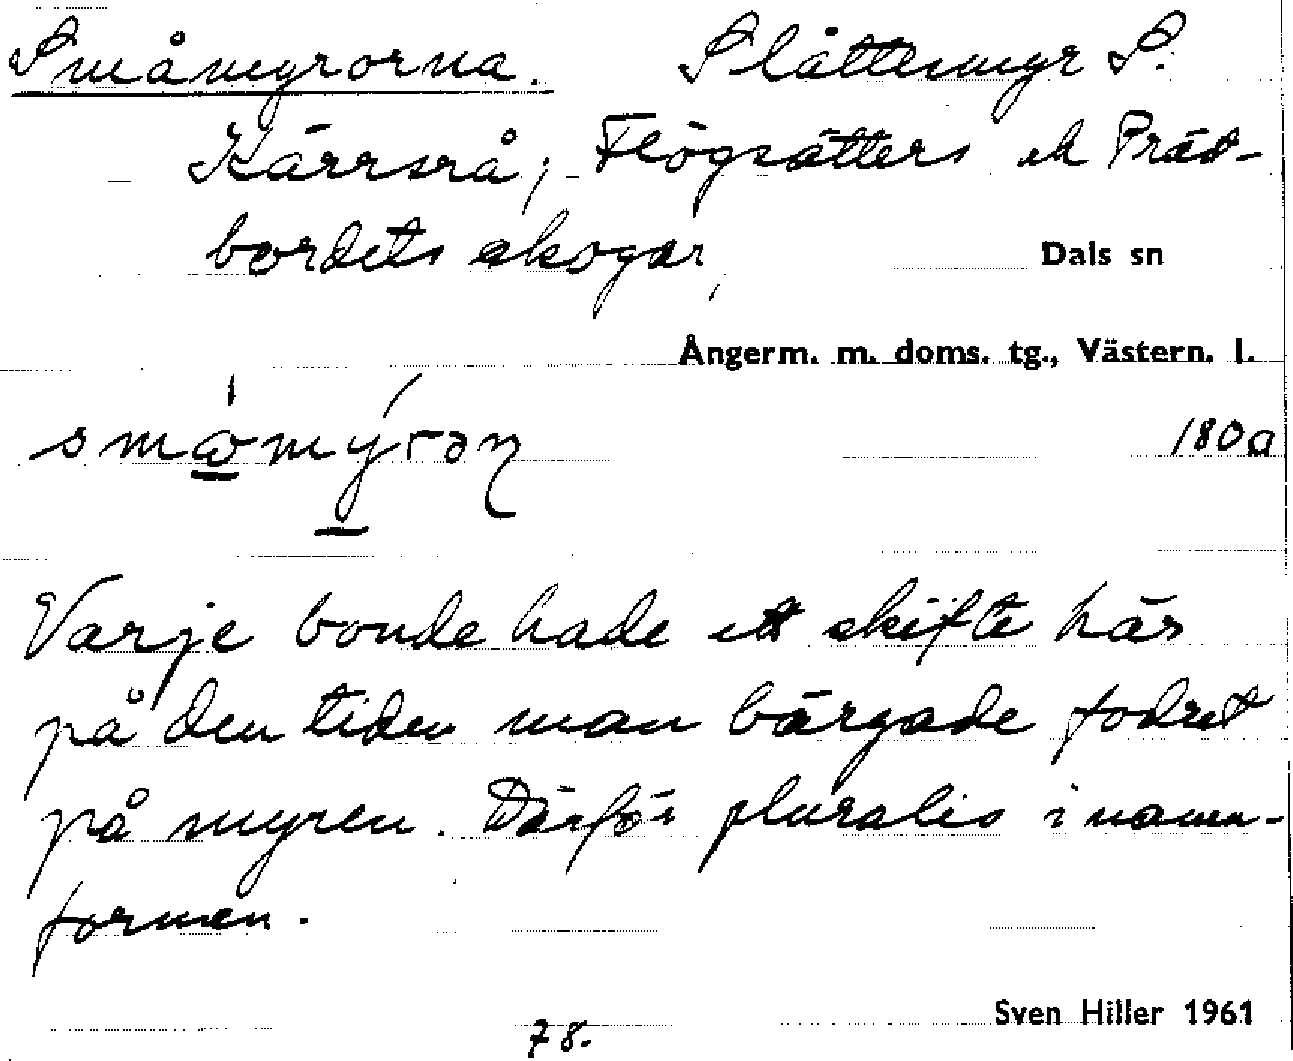 Småmyrorna. Slåttemyr S.
Kärrsrå, Flögsätters och Präst-
bordets skogar,
Dals sn
Ångerm. m. doms. tg., Västern. l.
180a
Varje bonde hade ett skifte här
på den tiden man bärgade fodret
på myren. Därför pluralis i namn-
formen.
Sven Hiller 1961
78.